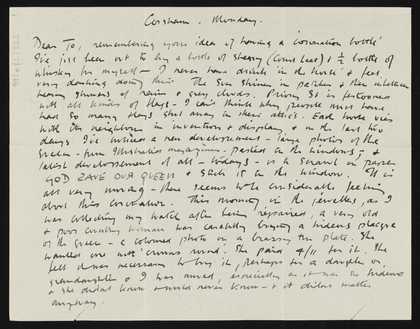 Corsham. Monday.
Dear Jo, remembering your idea of having a 'coronation bottle'
I've just been out to buy a bottle of sherry (Court Leet) & ½ bottle of
whiskey for myself – I never have drinks in the house & feel
very dashing doing this. The Sun shines in patches & then
heavy showers of rain & grey clouds. Priory St is festooned
with all kinds of flags – I can't think why people must have
had so many flags shut away in their attics. Each house vies
with the neighbour in invention & display & in the last two
days I've noticed a new development – large photos of the
Queen – from illustrated magazines – pasted on the windows; &
latest development of all – today's – is to scrawl on paper
GOD SAVE OUR QUEEN & stick it in the window. It is
all very moving – there seems to be considerable feeling
about this coronation. This morning in the jewellers, as I
was collecting my watch after being repaired, a very old
& poor country woman was carefully buying a hideous plaque
of the Queen – a coloured photo on a brassy tin plate. She
wanted one with 'crowns round'. She paid 4/11 for it. She
felt it was necessary to buy it, perhaps for a daughter or
grandaughter & I was moved, especially as it was so hideous
& she didn't know & would never know – & it didn't matter
anyway.